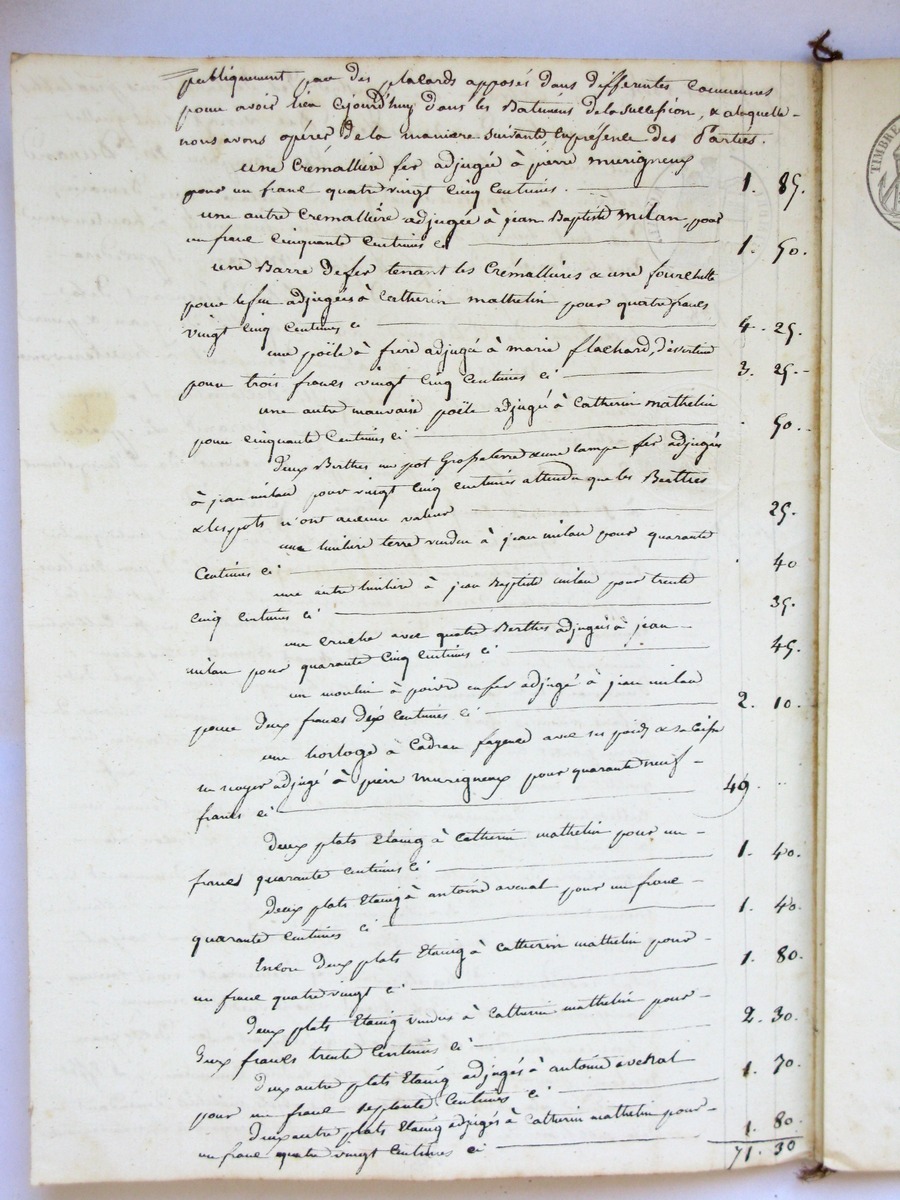 publiquement par des placards apposés dans differentes Communes
pour avoir lieu cejourd'huy dans les Batimens de la succession, & a laquelle
nous avons opérer de la maniere suivante en présence des Parties.
une Cremalliere fer adjugée à pierre murigneux
pour un franc quatre vingt Cinq Centimes. 1. 85.
une autre Cremalliere adjugée à jean Baptiste milan, pour
un franc Cinquante Centimes ci 1. 50.
une Barre de fer tenant les Crémallieres & une fourchette
pour le feu adjugées à Catherin mathelin pour quatre francs
vingt Cinq Centimes ci 4. 25.
une poële à frire adjugée à marie flachard, d'évertine
pour trois francs vingt Cinq Centimes ci 3. 25.
une autre mauvaise poële adjugée à Catherin mathelin
pour Cinquante Centimes ci 50.
deux Berthes un pot Grosse terre & une lampe fer adjugés
à jean milan pour vingt Cinq Centimes attendu que les Berthes
& les pots n'ont aucune valeur 25.
une huiliere terre vendue à jean milan pour quarante
Centimes ci 40
une autre huiliere à jean Baptiste milan pour trente
Cinq Centimes ci 35.
une cruche avec quatre Berthes adjugées à jean
milan pour quarante Cinq Centimes ci 45.
un moulin à poivre en fer adjugé à jean milan
pour deux francs dix Centimes ci 2. 10.
une horloge à Cadran fayence avec ses poids & sa Caisse
en noyer adjugé à pierre murigneux pour quarante neuf
francs ci 49
deux plats Etaing à Catherin mathelin pour un
franc quarante Centimes ci 1. 40.
deux plats Etaing à antoine avenat pour un franc
quarante Centimes ci 1. 40.
Encore deux plats Etaing à Catherin mathelin pour
un franc quatre vingt ci 1. 80.
deux plats Etaing vendus à Catherin mathelin pour
deux francs trente Centimes ci 2. 30.
deux autre plats Etaing adjugés à antoine avenat
pour un franc septente Centimes ci 1. 70
deux autre plats Etaing adjugés à Catherin mathelin pour
un franc quatre vingt Centimes ci 1. 80.
71. 30
TIMBRE